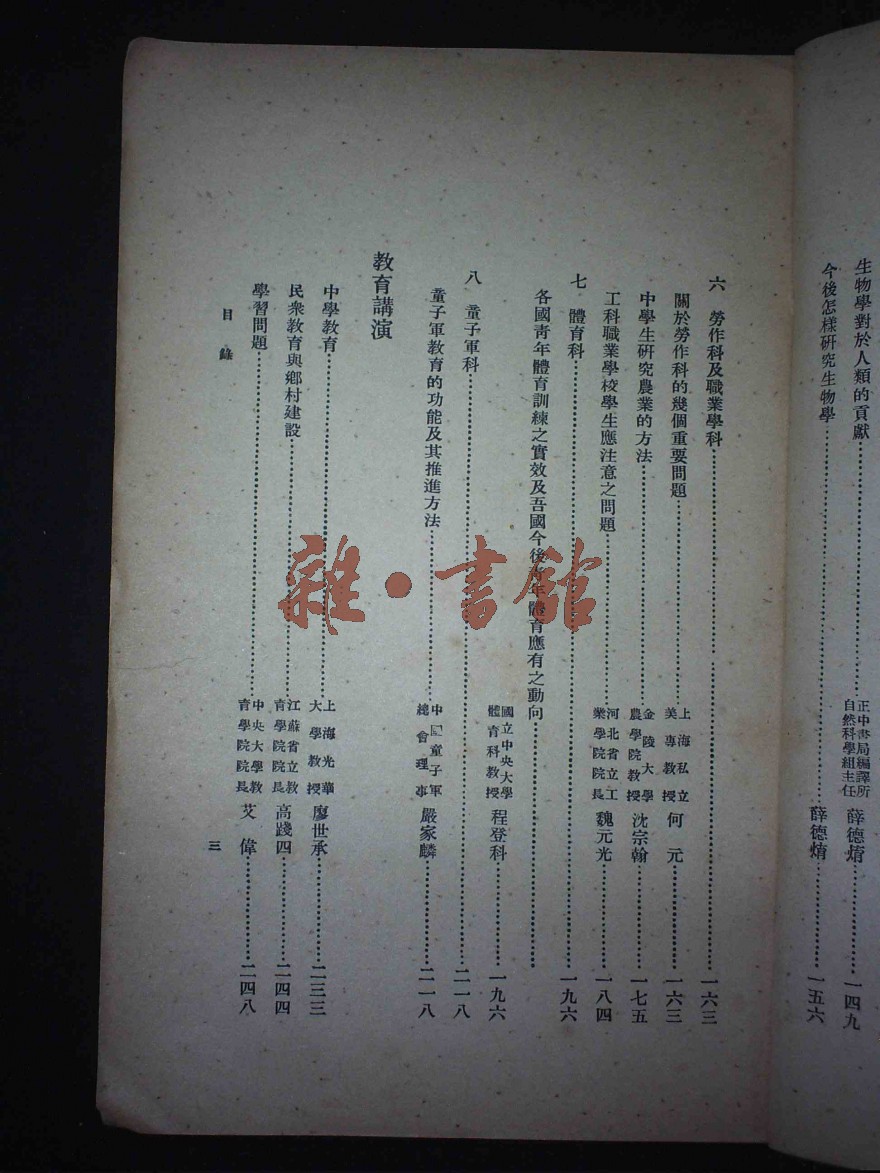 生物學對於人類的貢獻……正中書局編譯所自然科學組主任 薛德焴……一四九
今後怎樣研究生物學……薛德焴……一五六
六 勞作科及職業學科……一六三
關於勞作科的幾個重要問題……上海私立美專教授 何 元……一六三
中學生研究農業的方法……金陵大學農學院教授 沈宗翰……一七五
工科職業學校學生應注意之問題……河北省立工業學院院長 魏元光……一八四
七 體育科……一九六
各國青年體育訓練之實效及吾國今後青年體育應有之動向……
國立中央大學體育科教授 程登科……一九六
八 童子軍科……二一八
童子軍教育的功能及其推進方法……中國童子軍總會理事 嚴家麟……二一八
教育講演
中學教育……上海光華大學教授 廖世承……二三三
民衆教育與鄉村建設……江蘇省立教育學院院長 高踐四……二四四
學習問題……中央大學教育學院院長 艾 偉……二四八
目 錄
三
雜·書館